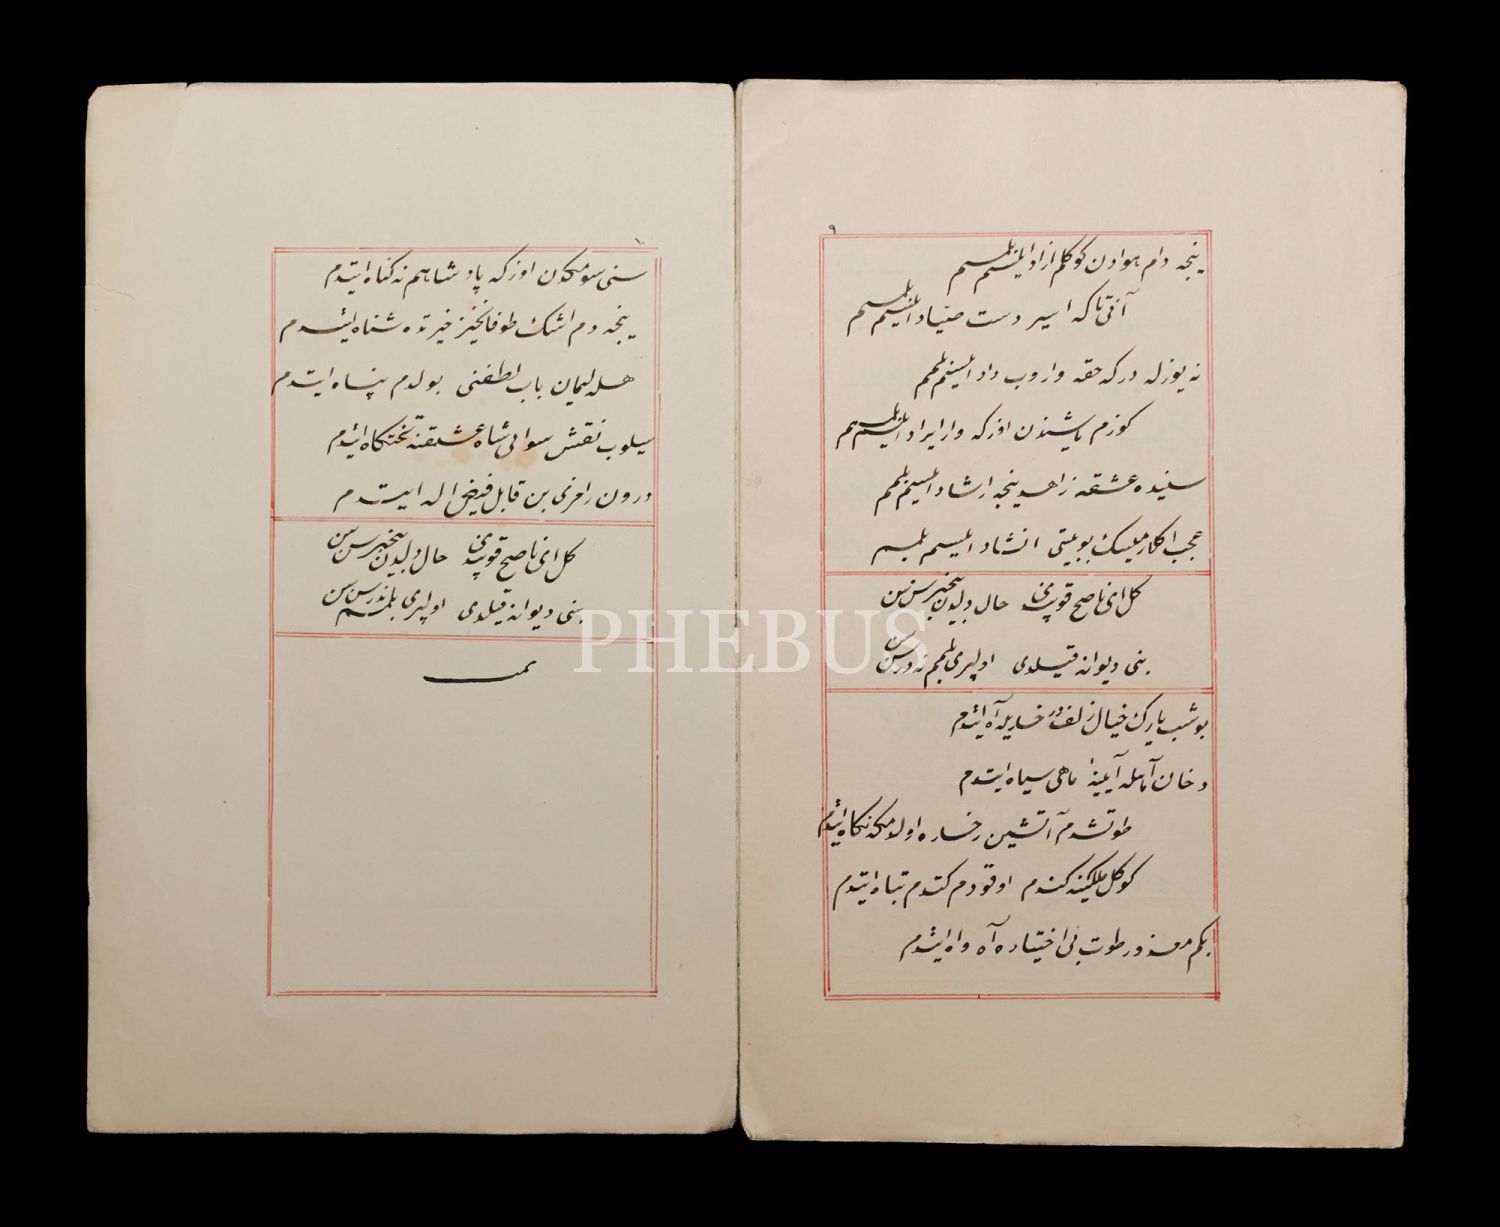 ٩
نیجه دام هوادن کوکلم ازاد ایلیم بیلمم
آفتی تا که اسیر دست صیاد ایلیم بیلمم
نه یوزله درکه حقه واروب داد ایلیم بیلمم
کوزم یاشندن اوزکه وار ایراد ایلیم بیلمم
سنیده عشقه زاهد نیجه ارشاد ایلیم بیلمم
عجب افکارمیسک بو بیتی انشاد ایلیم بیلمم
کل ای ناصح قو پندی حال دلدن بیخبرسن سن
بنی دیوانه قیلدی اول پری بیلمم نه درسن سن
بو شب یارک خیال زلف خدیله آه ایتدم
دخان آهله آیینهٔ ماهی سیاه ایتدم
طوتشدم آتشین رخساره اولدمکه نکاه ایتدم
کوکل ملکینه کندم اوقودم کندم تباه ایتدم
بکم معذور طوت بی اختیاره آه واه ایتدم
١٠
سنی سومکدن اوزکه پادشاهم نه کناه ایتدم
نیجه دم اشک طوفانخیز خیرتده شناه ایتدم
هله لیمان باب لطفنی بولدم پناه ایتدم
سیلوب نقش سوایی شاه عشقنه تختکاه ایتدم
درون رامزی بن قابل فیض اله ایتدم
کل ای ناصح قو پندی حال دلدن بیخبرسن سن
بنی دیوانه قیلدی اول پری بیلمم نه درسن سن
تمت
PHEBUS